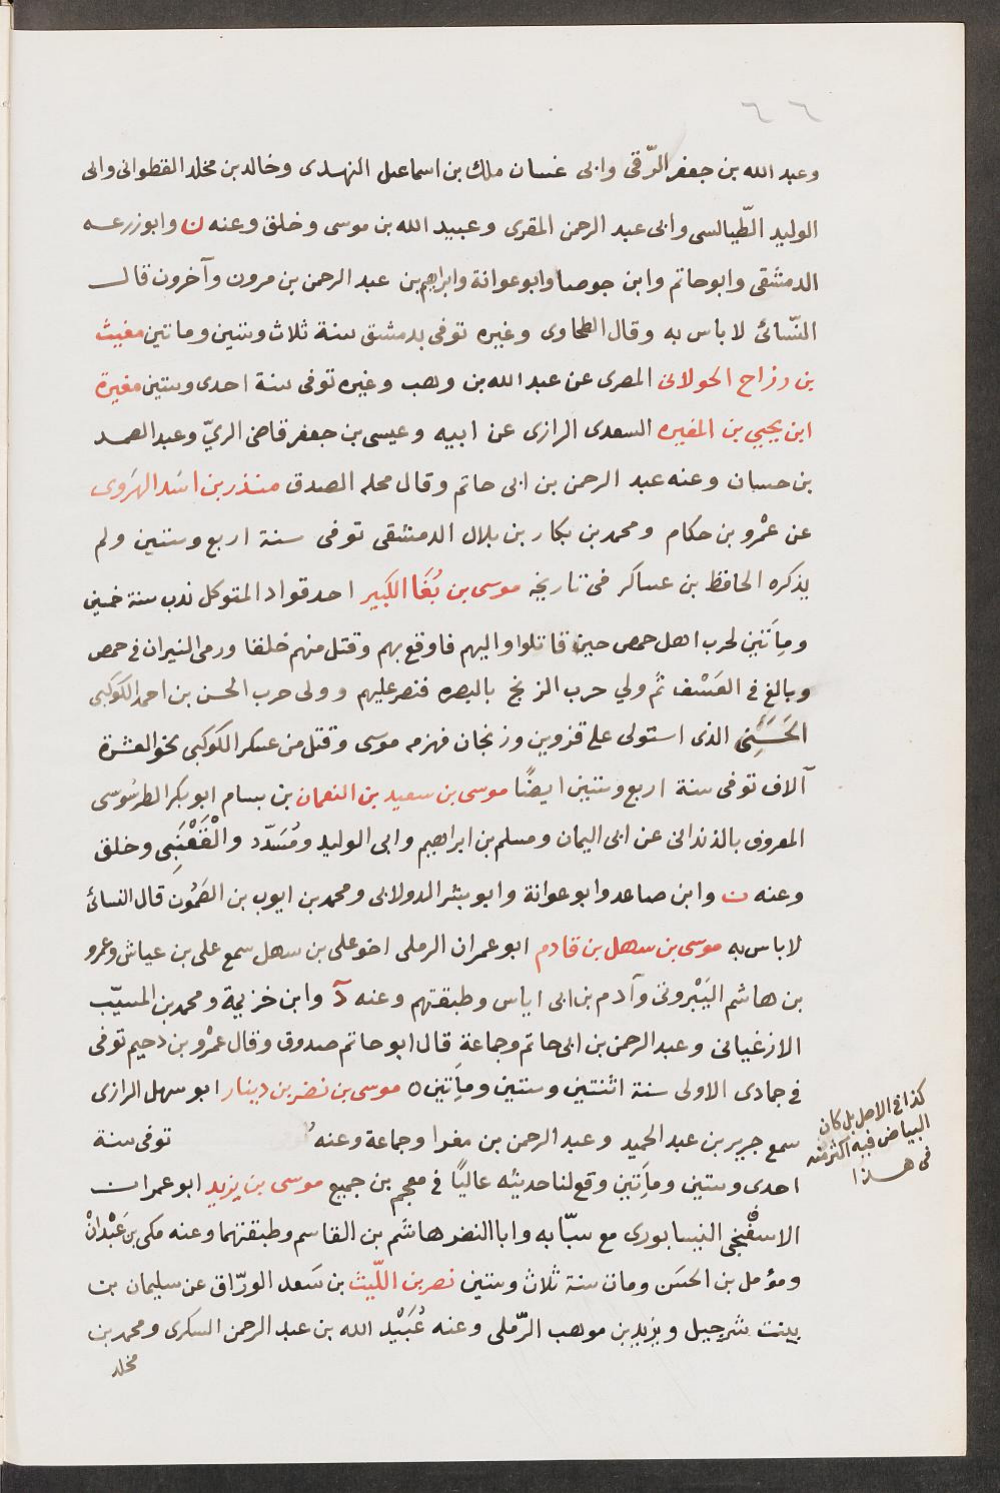 ٦٦
وعبد الله بن جعفر الرّقي وابى غسان ملك بن اسماعيل النهدى وخالد بن مخلد القطوانى وابى
الوليد الطّيالسى وابى عبد الرحمن المقرى وعبيد الله بن موسى وخلق وعنه ن وابو زرعه
الدمشقى وابو حاتم وابن جوصا وابو عوانة وابراهيم بن عبد الرحمن بن مرون وآخرون قال
النّسائى لا باس به وقال الطحاوى وغيره توفى بدمشق سنة ثلاث وستين وماتين مغيث
بن رزاح الخولانى المصرى عن عبد الله بن وهب وغيره توفى سنة احدى وستين مغيرة
ابن يحيى بن المغيره السعدى الرازى عن ابيه وعيسى بن جعفر قاضى الريّ وعبد الصمد
بن حسان وعنه عبد الرحمن بن ابى حاتم وقال محله الصدق منذر بن اسَد الهرَوى
عن عمْرو بن حكام ومحمد بن بكار بن بلال الدمشقى توفى سنة اربع وستين ولم
يذكره الحافظ بن عساكر فى تاريخه موسى بن بُغَا الكبير احد قواد المتوكل ندب سنة خمسين
ومِأَتين لحرب اهل حمص حين قاتلوا واليهم فاوقع بهم وقتل منهم خلقا ورمى النيران فى حمص
وبالغ فى العَسْف ثم ولي حرب الزنج بالبصره فنصر عليهم وولى حرب الحسن بن احمد الكوكبى
الحَسَنِى الذى استولى على قزوين وزنجان فهزمه موسى وقتل من عسكر الكوكبى نحو العشرة
آلاف توفى سنة اربع وستين ايضًا موسى بن سعيد بن النعمان بن بسام ابو بكر الطرسُوسى
المعروف بالدندانى عن ابى اليمان ومسلم بن ابراهيم وابى الوليد ومُسَدّد والْقَعْنَبِى وخلق
وعنه ن وابن صاعد وابو عوانة وابو بشر الدولابى ومحمد بن ايوب بن الصَمُوت قال النسائى
لا باس به موسى بن سهل بن قادم ابو عمران الرملى اخو على بن سهل سمع على بن عياش وعمرو
بن هاشم البَيْروتى وآدم بن ابى اياس وطبقتهم وعنه د وابن خزيمة ومحمد بن المسيّب
الارغيانى وعبد الرحمن بن ابى حاتم وجماعة قال ابو حاتم صدوق وقال عمْرو بن دحيم توفى
فى جمادى الاولى سنة اثنتين وستين ومأَتين ه موسى بن نصر بن دينار ابو سهل الرازى
سمع جرير بن عبد الحميد وعبد الرحمن بن مغرا وجماعة وعنه توفى سنة
احدى وستين ومأَتين وقع لنا حديثه عاليًا فى معجم بن جميع موسى بن يزيد ابو عمران
الاسفْنجى النيسابورى مع سبّابه وابا النضر هاشم بن القاسم وطبقتهما وعنه مكى بن عَبْدانْ
ومؤمل بن الحسَن ومات سنة ثلاث وستين نصر بن اللّيث بن سَعد الورّاق عن سليمان بن
بينت شرحبيل ويزيد بن موهب الرّملى وعنه عُبَيْد الله بن عبد الرحمن السكرى ومحمد بن
مخلد
كذا فى الاصل بل كان
البياض فيه اكثر منه
فى هـذا